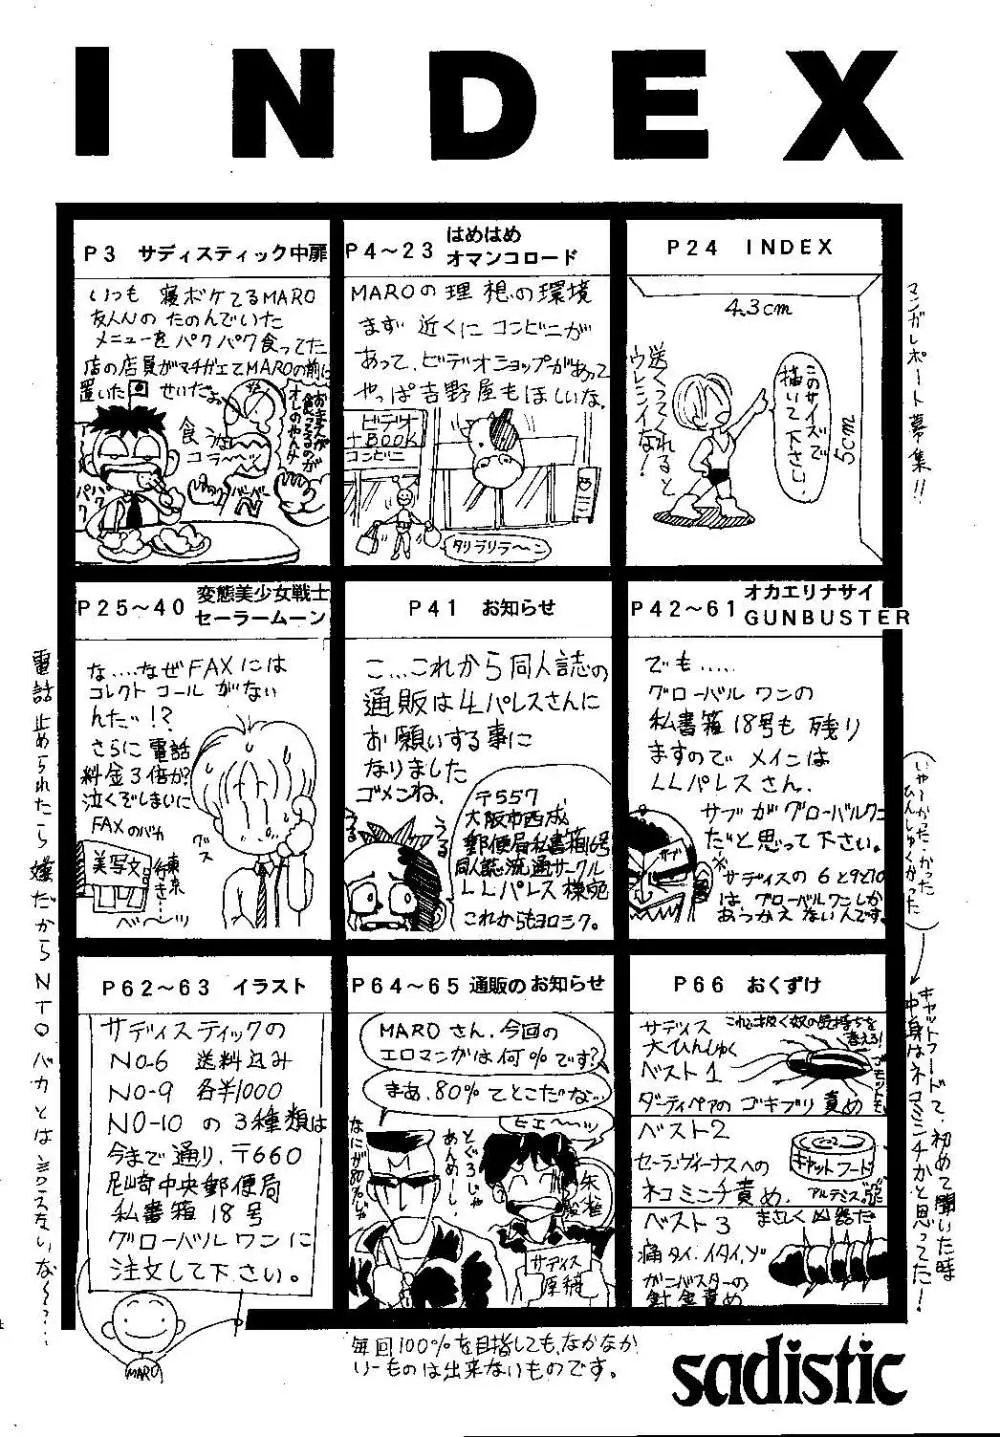 INDEX
P3 サディスティック中扉
いつも 寝ボケてるMARO
友人の たのんでいた
メニューを パクパク食ってた
店の店員がマチガエてMAROの前に
置いた せいだぁ
おまえが
食べてるのが
オレのやんけ
食うな
コラ〜〜
パクパク
P4〜23 はめはめ
オマンコロード
MAROの 理想の環境
まず 近くに コンビニが
あって、ビデオショップがあって
やっぱ 吉野屋も ほしいな。
ビデオ
+BOOK
コンビニ
タリラリラ〜ン
P24 INDEX
4.3cm
5cm
このサイズで
描いて下さい。
送ってくれると
ウレシイな!
マンガレポート募集!!
P25〜40 変態美少女戦士
セーラームーン
な....なぜFAXには
コレクト コールがない
んだッ!?
さらに 電話
料金3倍か?
泣くぞしまいに
FAXのバカ
グス
美写文
東京
行き…
ベ〜〜ッ
P41 お知らせ
こ...これから 同人誌の
通販は LLパレスさんに
お願いする事に
なりました
ゴメンね。
うる
うる
〒557
大阪市西成
郵便局私書箱16号
同人誌流通サークル
LLパレス 様宛
これからもヨロシク。
P42〜61 オカエリナサイ
GUNBUSTER
でも.....
グローバルワンの
私書箱18号も 残り
ますので メインは
LLパレスさん.
サブがグローバルワン
だと思って下さい。
サブ
※
サディスの 6と9と10
は、グローバルワンしか
あつかえないんです。
いやーかった・かった
ひんしゅくかった
キャットフードって、初めて聞いた時
中身はネコミンチかと思ってた!
電話止められたら嫌だからNTOバカとは言えないな〜?…
P62〜63 イラスト
サディスティックの
NO-6 送料込み
NO-9 各半1000
NO-10 の3種類は
今まで通り、〒660
尼崎中央郵便局
私書箱18号
グローバルワンに
注文して下さい。
MARO
P64〜65 通販のお知らせ
MAROさん、今回の
エロマンガは何%です?
まあ、80%てとこだな…
ヒエ〜〜ッ
なにが80%じゃ
とぐろじゃ
あんめーし。
朱雀
サディス
原稿
P66 おくずけ
サディス
大ひんしゅく
ベスト1
これに抜く奴の気持ちを
考えろ!
ダーティペアの ゴキブリ責め
ベスト2
セーラーヴィーナスへの
ネコミンチ責め.
キャットフード
ベスト3
まさしく 凶器だ
痛タイ、イタイ、ゾ
ガンバスターの
針金責め
毎回100%を目指しても、なかなか
いーものは出来ないものです。
sadistic